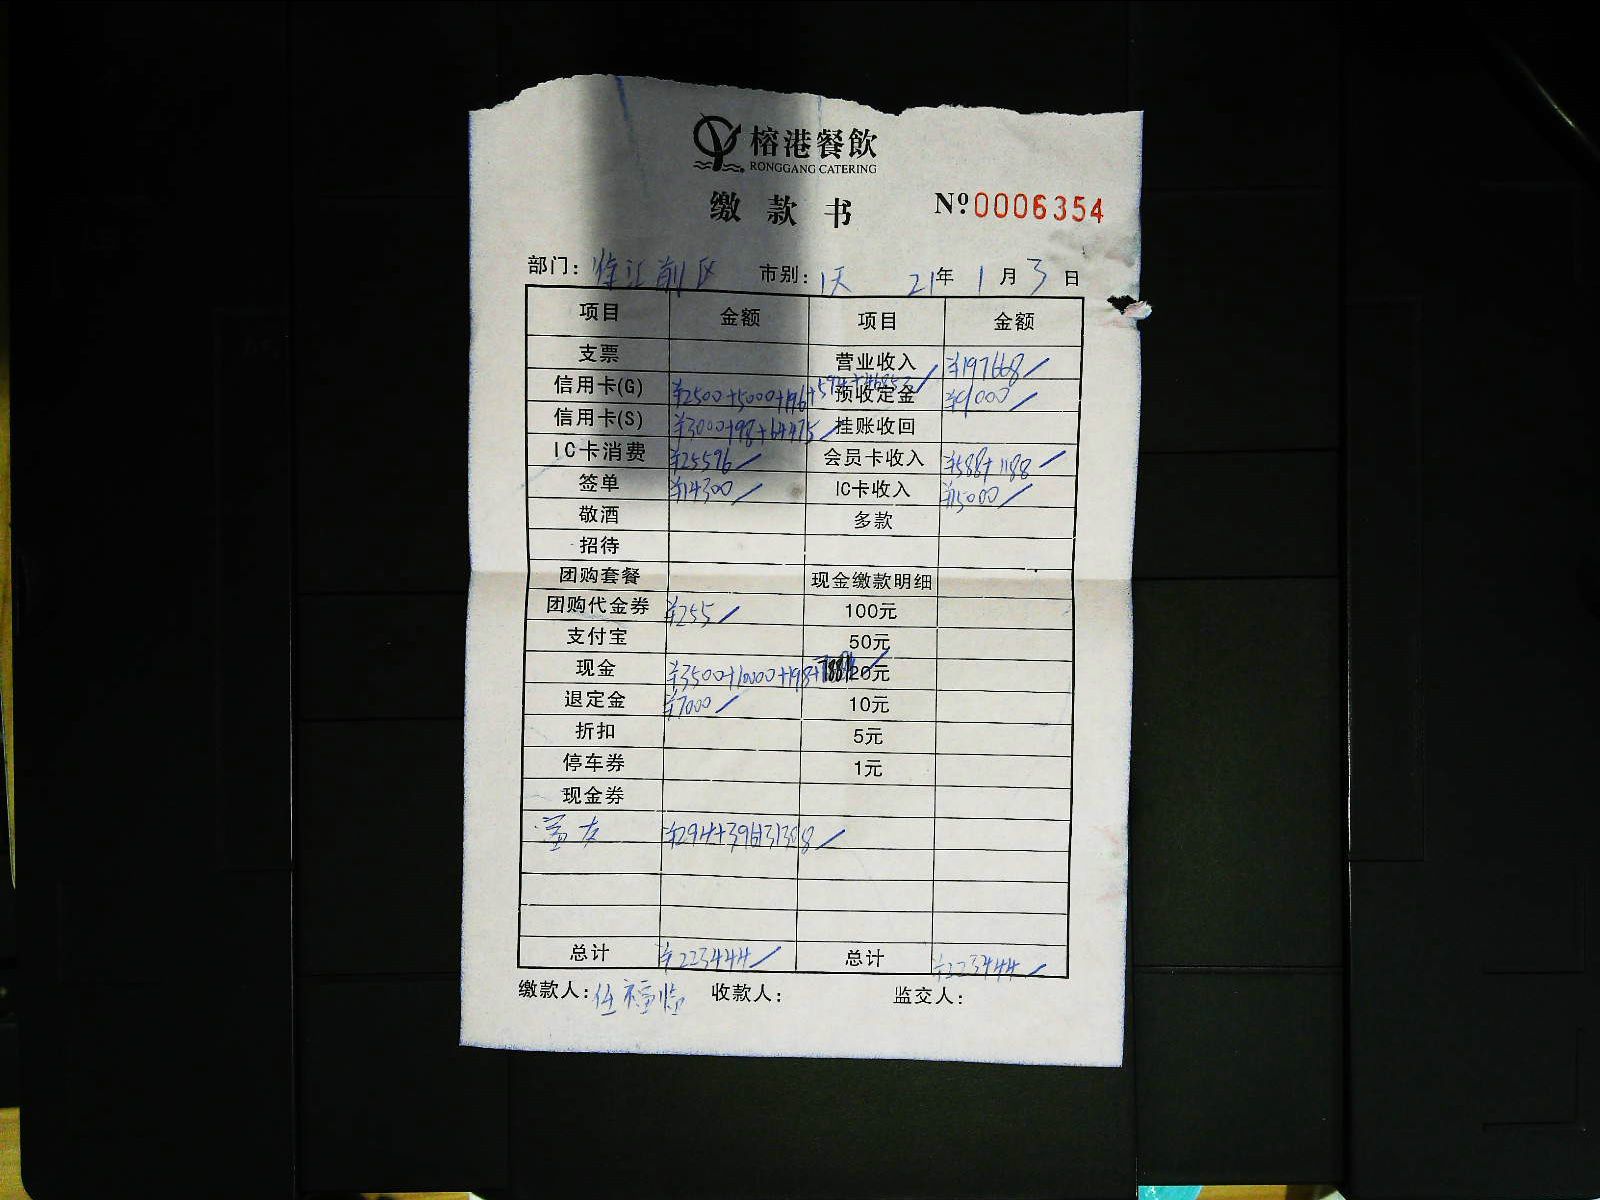 榕港餐飲
RONGGANG CATERING
缴款书 Nº0006354
部门: 徐江前区 市别: 1天 21年 1月 3日
项目 金额 项目 金额
支票 营业收入 ¥197668
信用卡(G) ¥2500+5000+196+ 预收定金 ¥9000
信用卡(S) ¥3000+98+64475 挂账收回
IC卡消费 ¥25576 会员卡收入 ¥588+1188
签单 ¥14300 IC卡收入 ¥15000
敬酒 多款
招待
团购套餐 现金缴款明细
团购代金券 ¥255 100元
支付宝 50元
现金 ¥3500+10000+198+ 20元
退定金 ¥7000 10元
折扣 5元
停车券 1元
现金券
¥294+396+31308
总计 ¥223444 总计 ¥223444
缴款人: 收款人: 监交人: